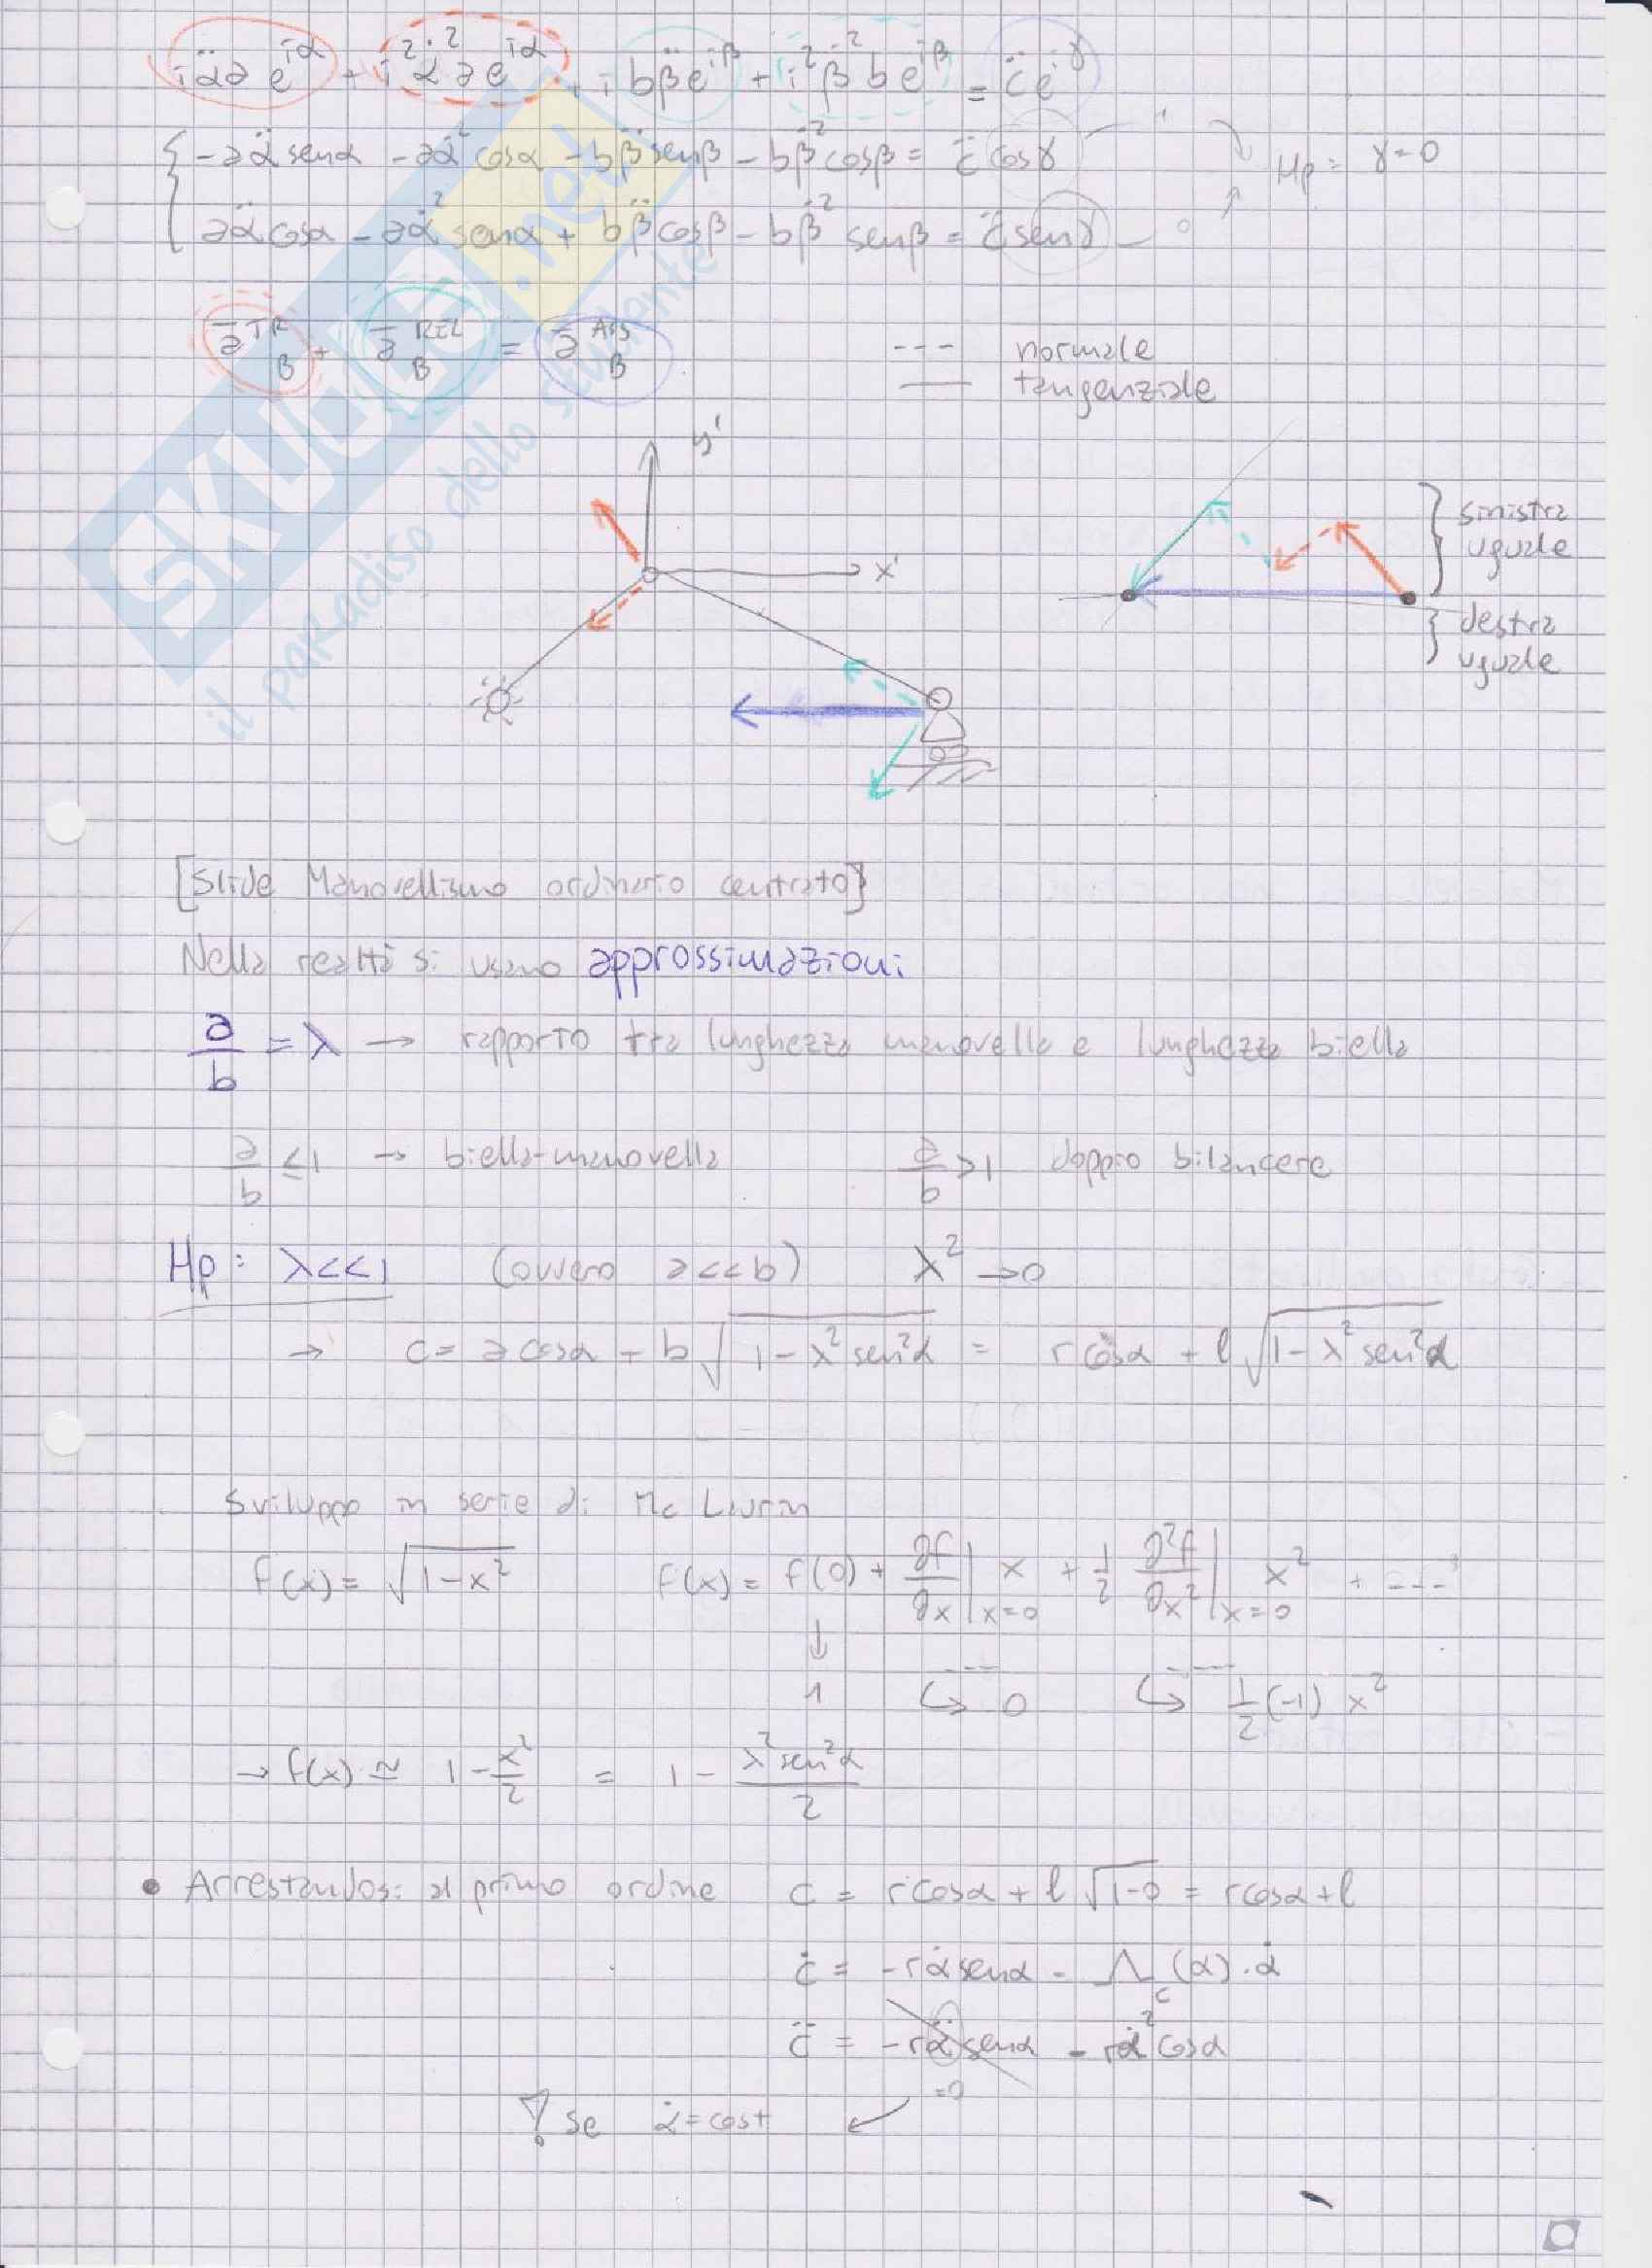 iα̈a e^{iα} + i²α̇²a e^{iα} + i bβ̈ e^{iβ} + i²β̇² b e^{iβ} = c̈ e^{iγ}
{ -aα̈ senα - aα̇² cosα - bβ̈ senβ - bβ̇² cosβ = c̈ cosγ — 1 Hp = γ = 0
aα̈ cosα - aα̇² senα + bβ̈ cosβ - bβ̇² senβ = c̈ senγ — 0
a̅_B^{TR} + a̅_B^{REL} = a̅_B^{ASS}
--- normale
— tangenziale
y'
x'
sinistra uguale
destra uguale
[Slide Manovellismo ordinario centrato]
Nella realtà si usano approssimazioni
a/b = λ → rapporto tra lunghezza manovella e lunghezza biella
a/b ≤ 1 → biella-manovella a/b > 1 doppio bilancere
Hp: λ<<1 (ovvero a<<b) λ² → 0
→ c = a cosα + b √(1-λ² sen²α) = r cosα + l √(1-λ² sen²α)
Sviluppo in serie di Mc Laurin
f(x) = √(1-x²) f(x) = f(0) + ∂f/∂x |_{x=0} x + 1/2 ∂²f/∂x² |_{x=0} x² + ---
↓ 1 ↳ 0 ↳ 1/2 (-1) x²
→ f(x) ≃ 1 - x²/2 = 1 - λ² sen²α / 2
• Arrestandosi al primo ordine c = r cosα + l √(1-0) = r cosα + l
ċ = -rα̇ senα = Λ_c (α) · α̇
c̈ = -rα̈ senα - rα̇² cosα
=0
! se α̇ = cost
SKUOLA.net
il paradiso dello studente